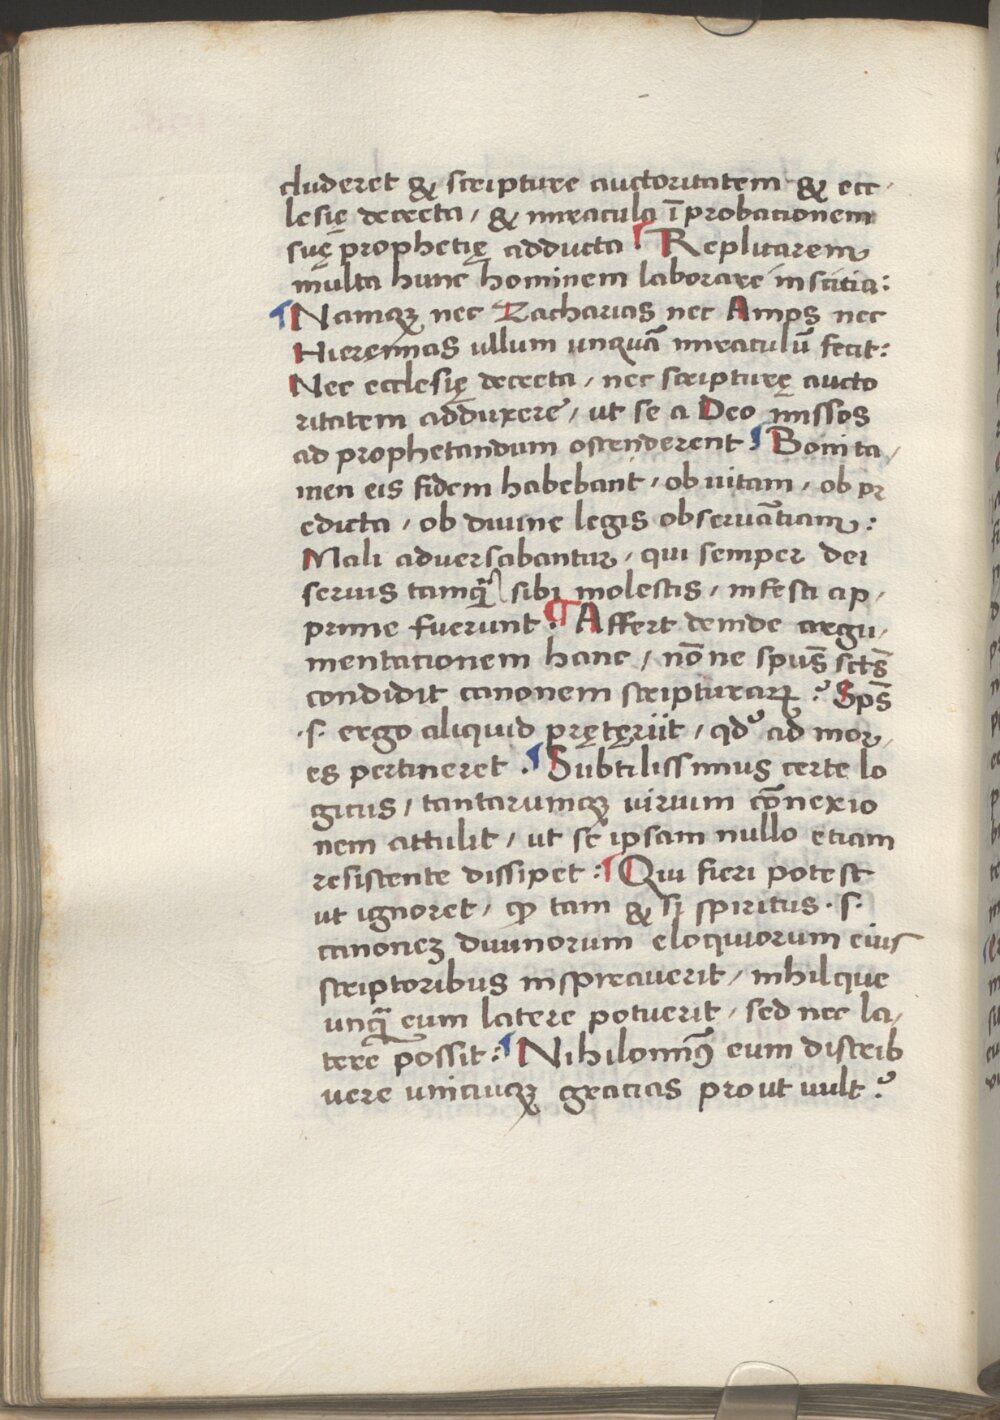 cluderet & scripture auctoritatem & ecc,
lesię decreta / & miracula ī probationem
suę prophetię adducta : ¶ Replicarem
multa hunc hominem laborare inscitia :
¶ Namqꝫ nec Zacharias nec Amos nec
Hieremias ullum unquā miraculū fecit :
Nec ecclesię decreta / nec scripturę aucto
ritatem adduxere / ut se a Deo missos
ad prophetandum ostenderent : ¶ Boni ta /
men eis fidem habebant / ob uitam / ob pr
edicta / ob diuine legis obseruātiam :
Mali aduersabantur / qui semper dei
seruis tamꝙ̃ sibi molestis / infesti ap /
prime fuerunt : ¶ Affert deinde argu /
mentationem hanc / nōne spūs sctūs
condidit canonem scripturarꝝ ? Spūs
·s· ergo aliquid pręterįit / qd' ad mor /
es pertineret . ¶ Subtilissimus certe lo
gicus / tantarumqꝫ uirium cōnexio
nem attulit / ut se ipsam nullo etiam
resistente dissipet : ¶ Qui fieri potest
ut ignoret / ꝙ tam & si spiritus · s ·
canoneꝫ diuinorum eloquiorum eius
scriptoribus inspirauerit / nihilque
unꝙ̃ eum latere potuerit / sed nec la /
tere possit : ¶ Nihilominꝰ eum distrib
uere unicuiqꝫ gratias prout uult ?